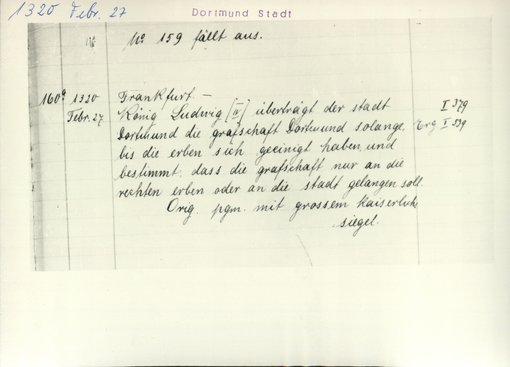 1320 Febr. 27
Dortmund Stadt
No 159 fällt aus.
160a 1320 Frankfurt –
Febr. 27. König Ludwig [IV] überträgt der stadt I 379
Dortmund die grafschaft Dortmund solange, Erg I 339
bis die erben sich geeinigt haben, und
bestimmt, dass die grafschaft nur an die
rechten erben oder an die stadt gelangen soll.
Orig. pgm. mit grossem Kaiserlichen
siegel.